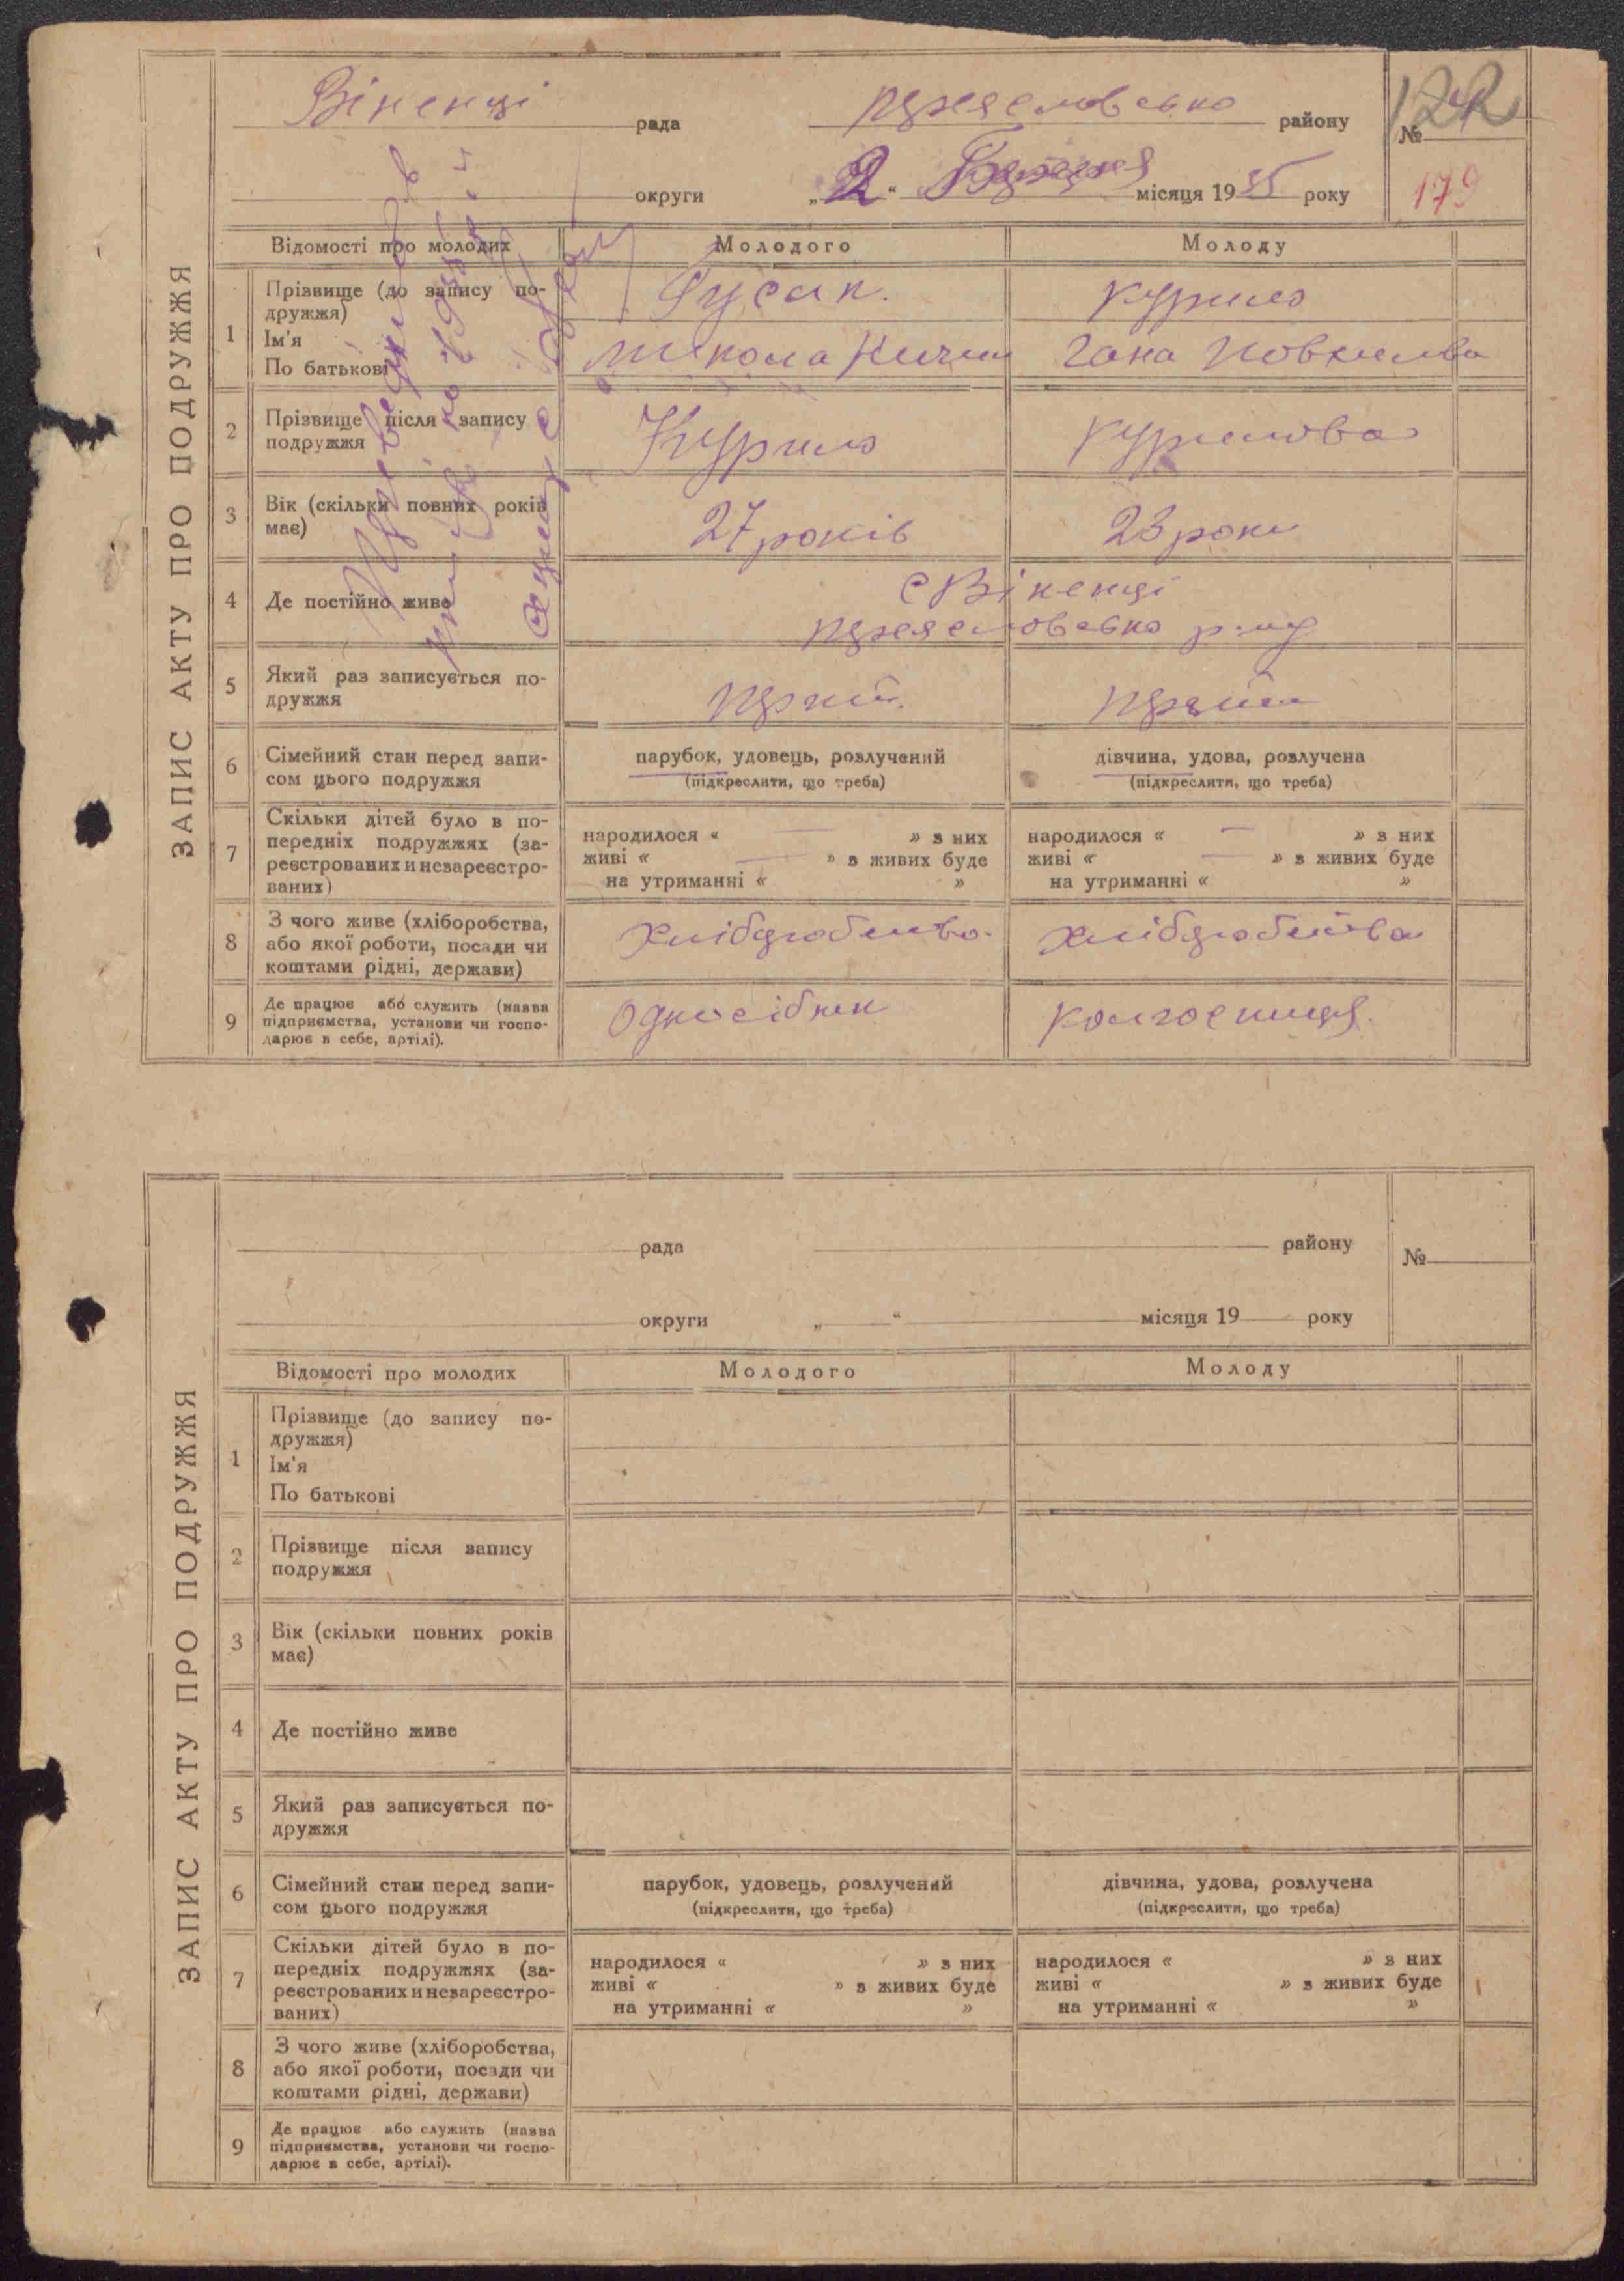 ЗАПИС АКТУ ПРО ПОДРУЖЖЯ
Віненці рада переяславсько району
№ 122
округи „2“ місяця 1935 року
179
Відомості про молодих Молодого Молоду
1 Прізвище (до запису по-
дружжя)
Ім'я
По батькові
Гусак. Курило
микола Кичи гана Йовхимова
2 Прізвище після запису
подружжя
Курило Курилова
3 Вік (скільки повних років
має)
27 років 23 роки
4 Де постійно живе
с Віненці
переяславсько р-ну
5 Який раз записується по-
дружжя
перший. перший
6 Сімейний стан перед запи-
сом цього подружжя
парубок, удовець, розлучений
(підкреслити, що треба)
дівчина, удова, розлучена
(підкреслити, що треба)
7 Скільки дітей було в по-
передніх подружжях (за-
реєстрованих и незареєстро-
ваних)
народилося « — » з них
живі « — » з живих буде
на утриманні « »
народилося « — » з них
живі « — » з живих буде
на утриманні « »
8 З чого живе (хліборобства,
або якої роботи, посади чи
коштами рідні, держави)
хлібороб
9 Де працює або служить (назва
підприємства, установи чи госпо-
дарює в себе, артілі).
Односібник колгоспниця.
ЗАПИС АКТУ ПРО ПОДРУЖЖЯ
рада району
№
округи „ “ місяця 19 року
Відомості про молодих Молодого Молоду
1 Прізвище (до запису по-
дружжя)
Ім'я
По батькові
2 Прізвище після запису
подружжя
3 Вік (скільки повних років
має)
4 Де постійно живе
5 Який раз записується по-
дружжя
6 Сімейний стан перед запи-
сом цього подружжя
парубок, удовець, розлучений
(підкреслити, що треба)
дівчина, удова, розлучена
(підкреслити, що треба)
7 Скільки дітей було в по-
передніх подружжях (за-
реєстрованих и незареєстро-
ваних)
народилося « » з них
живі « » з живих буде
на утриманні « »
народилося « » з них
живі « » з живих буде
на утриманні « »
8 З чого живе (хліборобства,
або якої роботи, посади чи
коштами рідні, держави)
9 Де працює або служить (назва
підприємства, установи чи госпо-
дарює в себе, артілі).